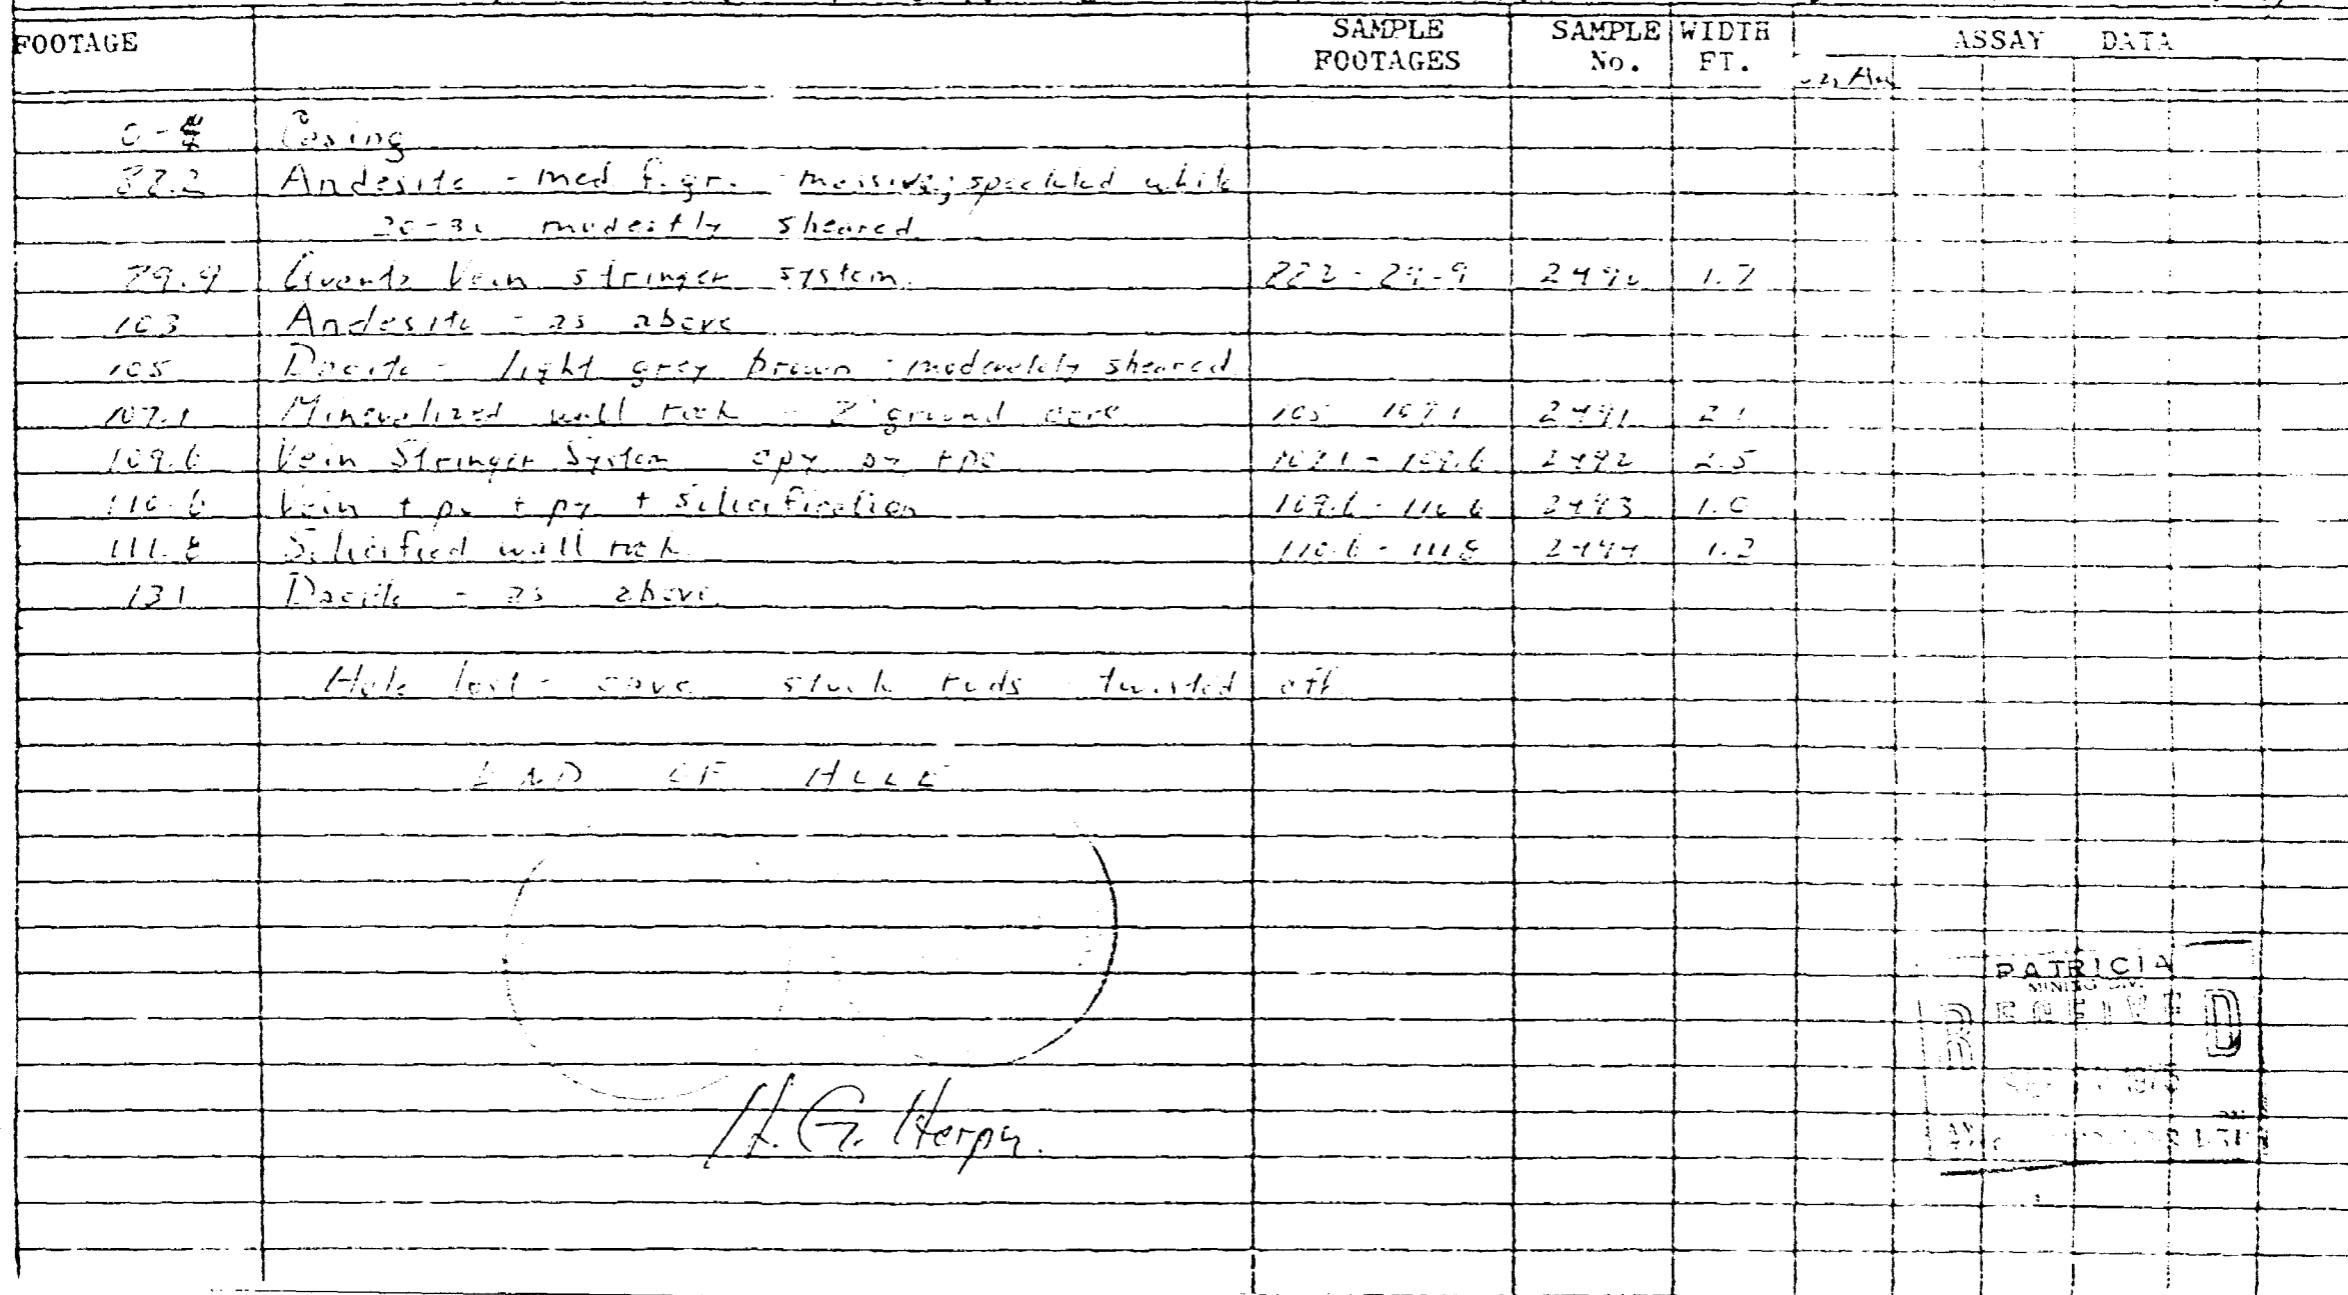 FOOTAGE SAMPLE FOOTAGES SAMPLE No. WIDTH FT. ASSAY DATA
Casing
88.2 Andesite - med f.gr. - massive; speckled white
20-30 modestly sheared
89.9 Quartz Vein stringer system 88.2 - 89.9 2490 1.7
103 Andesite - as above
105 Dacite - light grey brown - moderately sheared
107.1 Mineralized wall rock - 2" ground core 105 107.1 2491 2.1
109.6 Vein Stringer System cpy py 107.1 - 109.6 2492 2.5
110.6 Vein + po + py + Silicification 109.6 - 110.6 2493 1.0
111.8 Silicified wall rock 110.6 - 111.8 2494 1.2
131 Dacite - as above
Hole lost - cave stuck rods twisted off
END OF HOLE
H. G. Harper
PATRICIA
MINING DIV.
RECEIVED